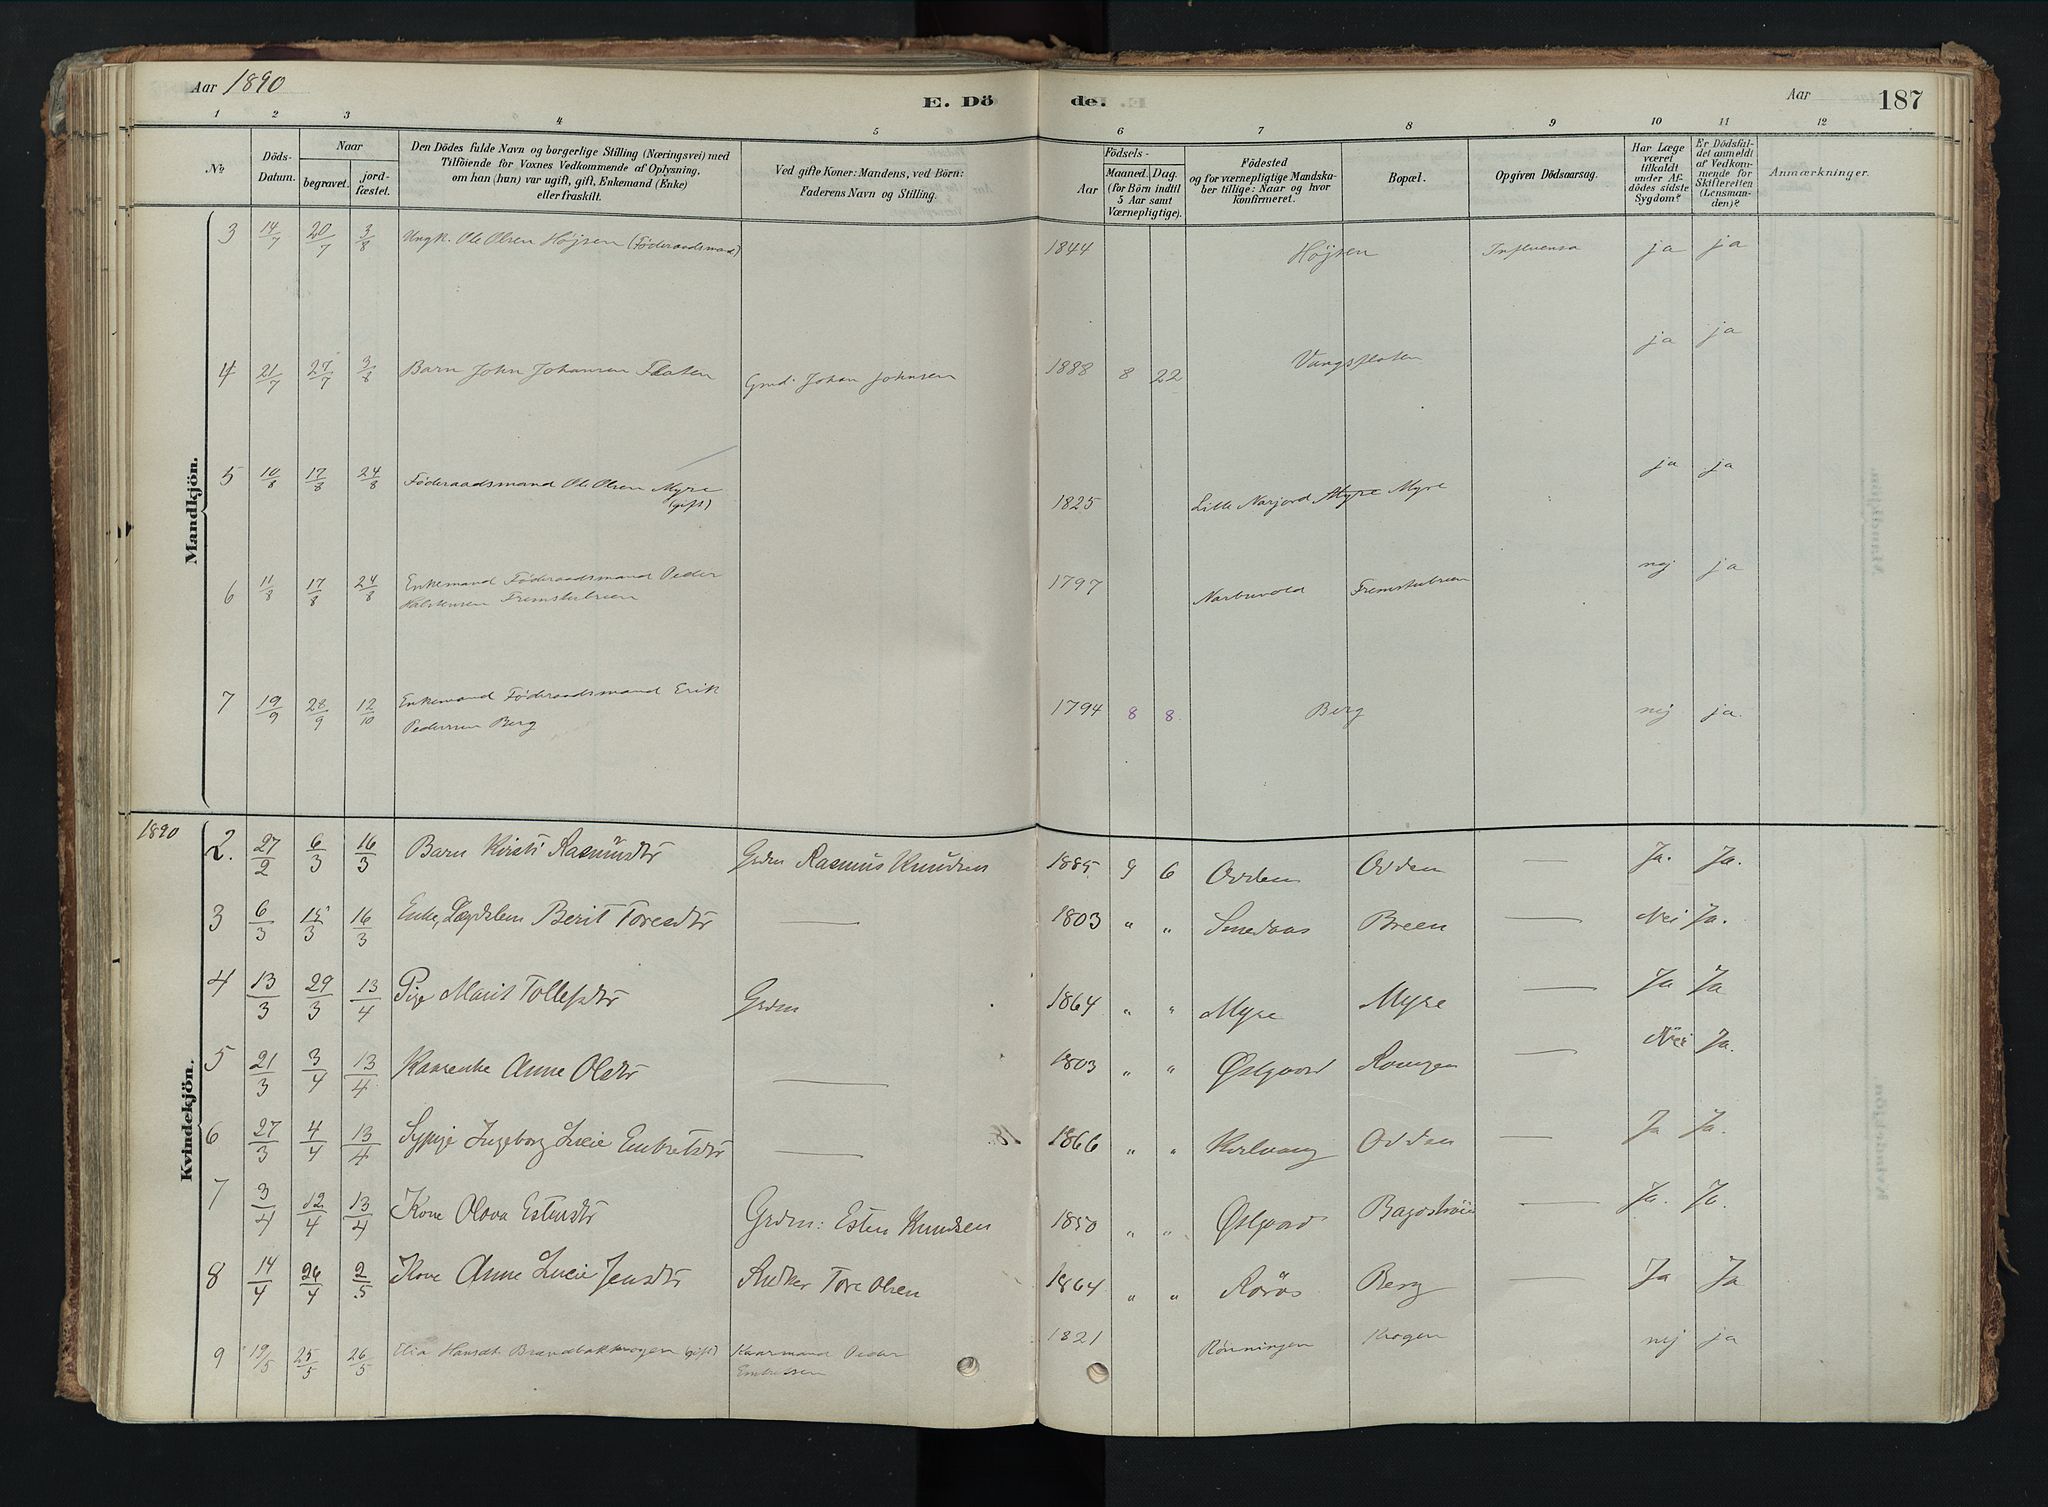 Aar 1890
E. Dö de.
Aar
187
1 2 3 4 5 6 7 8 9 10 11 12
No
Döds-Datum.
Naar
begravet. jord-fæstet.
Den Dödes fulde Navn og borgerlige Stilling (Næringsvei) med Tilföiende for Voxnes Vedkommende af Oplysning, om han (hun) var ugift, gift, Enkemand (Enke) eller fraskilt.
Ved gifte Koner: Mandens, ved Börn: Faderens Navn og Stilling.
Födsels-
Aar
Maaned. Dag.
(for Börn indtil 5 Aar samt Værnepligtige).
Födested og for værnepligtige Mandskaber tillige: Naar og hvor konfirmeret.
Bopæl.
Opgiven Dödsaarsag.
Har Læge været tilkaldt under Afdödes sidste Sygdom?
Er Dödsfaldet anmeldt af Vedkommende for Skifteretten (Lensmanden)?
Anmærkninger.
Mandkjön.
3 14/7 20/7 3/8 Ungk. Ole Olsen Højsen (Föderaadsmand) 1844 Højsen Influensa ja ja
4 21/7 27/7 3/8 Barn John Johansen Floten Gmd. Johan Johnsen 1888 8 22 Vangsfloten ja ja
5 10/8 17/8 24/8 Föderaadsmand Ole Olsen Myre
(gift) 1825 Lille Narjord Myre Myre ja ja
6 11/8 17/8 24/8 Enkemand Föderaadsmand Peder
Halstensen Fremstubreen 1797 Narbuvold Fremstubreen nej ja
7 19/9 28/9 12/10 Enkemand Föderaadsmand Erik
Pedersen Berg 1794 8 8 Berg nej ja.
1890
Kvindekjön.
2. 27/2 6/3 16/3 Barn Kirsti Rasmusdtr Grdm Rasmus Knudsen 1885 9 6 Odden Odden — Ja. Ja.
3 6/3 15/3 16/3 Enke, Lægdslem Berit Toresdtr — 1803 " " Smedaas Breen — Nei Ja.
4 13/3 29/3 13/4 Pige Marit Tollefsdtr Grdm 1864 " " Myre Myre — Ja Ja
5 21/3 3/4 13/4 Kaarenke Anne Olsdtr — 1803 " " Østgaard — Nei Ja.
6 27/3 4/4 13/4 Sypige Ingeborg Lucie Embretsdtr — 1866 " " Odden — Ja Ja.
7 3/4 12/4 13/4 Kone Olava Estensdtr Grdm: Esten Knudsen 1850 " " Østgaard — Ja. Ja.
8 14/4 26/4 2/5 Kone Anne Lucie Jensdtr Sndker Tore Olsen 1864 " " Röros Berg — Ja Ja
9 19/5 25/5 26/5 Hansdt. Brændbakkrogen (gift) Kaarmand Peder
Embretsen 1821 Rönningen Krogen nej ja